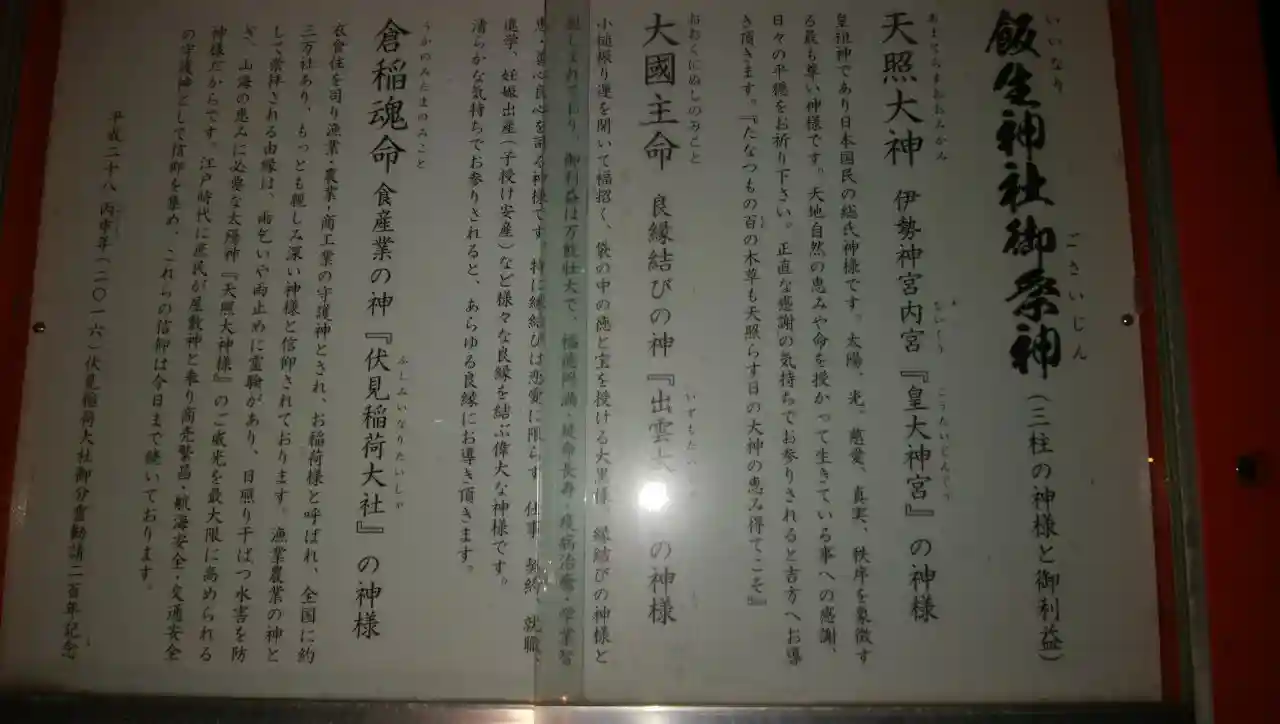 飯生神社御祭神（三柱の神様と御利益）
いいなり ごさいじん
天照大神 伊勢神宮内宮『皇大神宮』の神様
あまてらすおおみかみ ないくう こうたいじんぐう
皇祖神であり日本国民の総氏神様です。太陽、光。慈愛、真実、秩序を象徴す
る最も尊い神様です。天地自然の恵みや命を授かって生きている事への感謝、
日々の平穏をお祈り下さい。正直な感謝の気持ちでお参りされると吉方へお導
き頂きます。『たなつもの百の木草も天照らす日の大神の恵み得てこそ』
大國主命 良縁結びの神『出雲大 の神様
おおくにぬしのみこと いずもたい
小槌振り運を開いて福招く、袋の中の徳と宝を授ける大黒様、縁結びの神様と
親しまれており、御利益は万能壮大で、福徳円満・延命長寿・疫病治療・学業智
恵・善心良心を司る神様です。特に縁結びは恋愛に限らず 仕事 契約、就職、
進学、妊娠出産（子授け安産）など様々な良縁を結ぶ偉大な神様です。
清らかな気持ちでお参りされると、あらゆる良縁にお導き頂きます。
倉稲魂命 食産業の神『伏見稲荷大社』の神様
うかのみたまのみこと ふしみいなりたいしゃ
衣食住を司り漁業・農業・商工業の守護神とされ、お稲荷様と呼ばれ、全国に約
三万社あり、もっとも親しみ深い神様と信仰されております。漁業農業の神と
して崇拝される由縁は、雨乞いや雨止めに霊験があり、日照り干ばつ水害を防
ぎ、山海の恵みに必要な太陽神『天照大神様』のご威光を最大限に高められる
神様だからです。江戸時代に庶民が屋敷神と奉り商売繁昌・航海安全・交通安全
の守護神として信仰を集め、これらの信仰は今日まで続いております。
平成二十八 丙申年（二〇一六）伏見稲荷大社御分霊勧請二百年記念